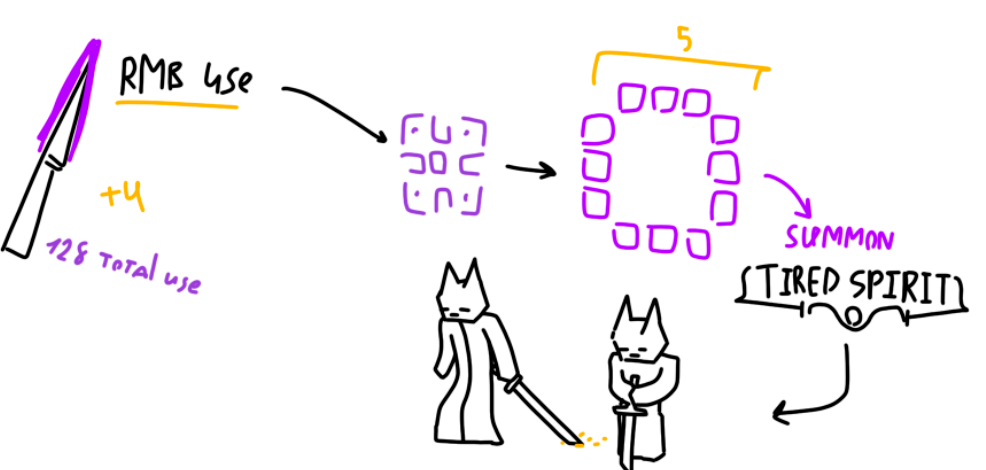 5
RMB use
+4
128 TOTAL use
SUMMON
TIRED SPIRIT